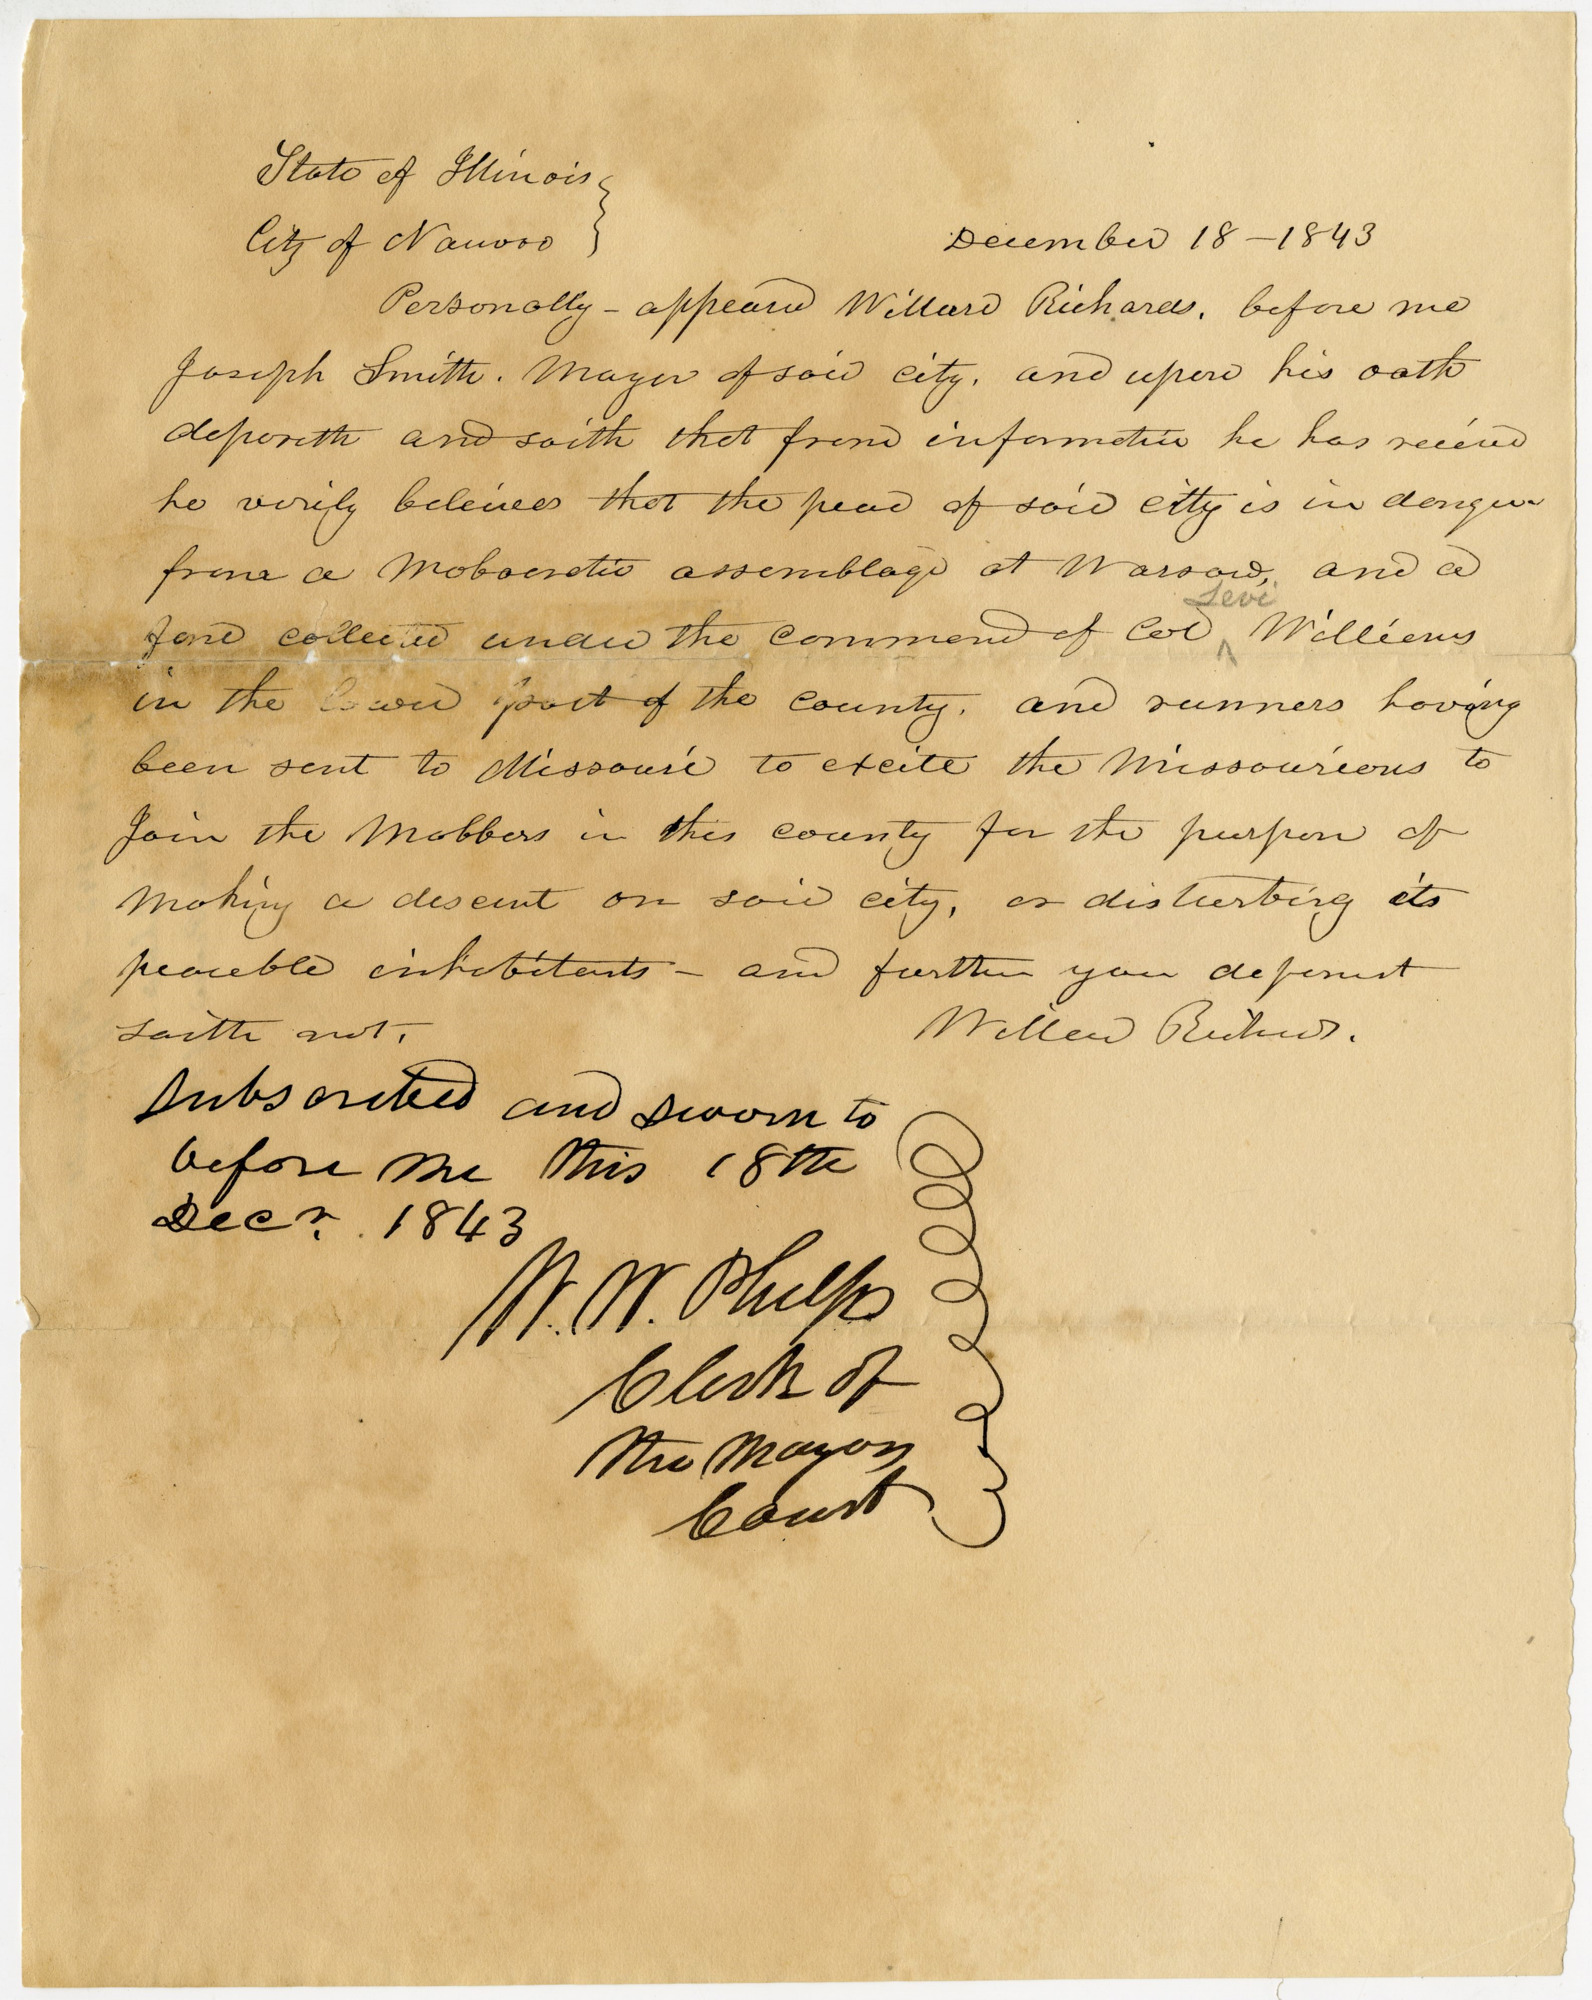 State of Illinois }
City of Nauvoo }
December 18 – 1843
Personally – appeared Willard Richards. before me
Joseph Smith. Mayor of said city. and upon his oath
deposeth and saith that from information he has recieved
he verily beleives that the peace of said city is in danger
from a Mobocratic assemblage at Warsaw, and a
Levi
force collected under the command of Col ^ Williams
in the lower part of the county. and runners having
been sent to Missouri to excite the Missourians to
Join the Mobbers in this county for the purpose of
making a descent on said city, or disturbing its
peaceble inhabitants – and further your deponent
saith not.
Willard Richards.
Subscribed and sworn to
before me this 18th
Decr. 1843
W. W. Phelps
Clerk of
the Mayors
Court